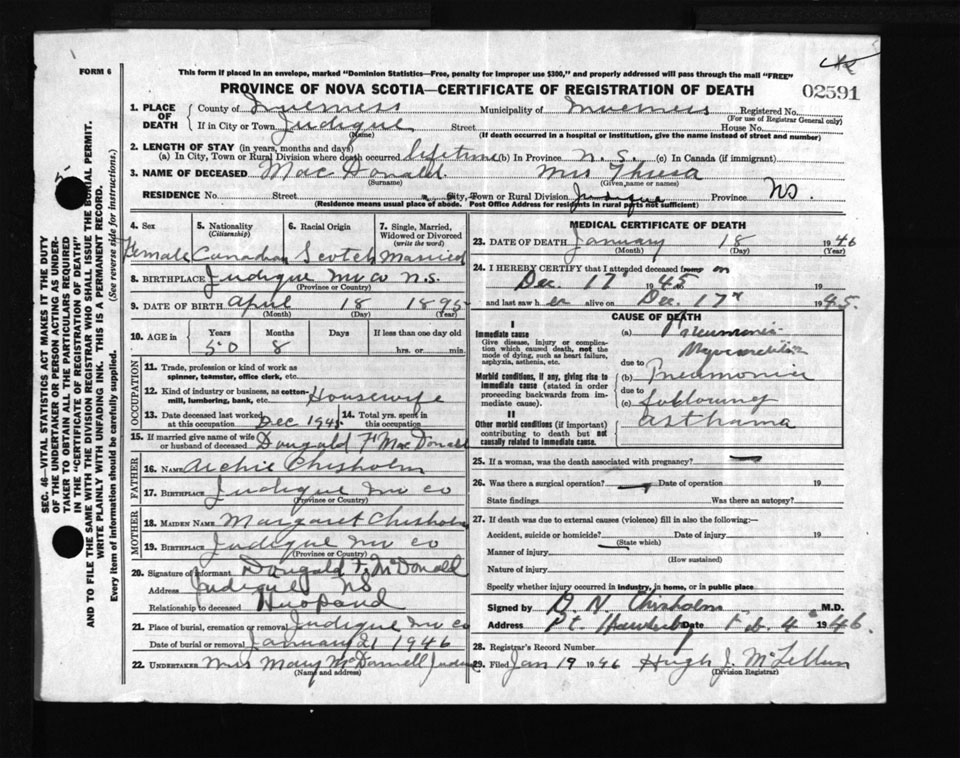 FORM 6
This form if placed in an envelope, marked "Dominion Statistics—Free, penalty for improper use $300," and properly addressed will pass through the mail "FREE"
PROVINCE OF NOVA SCOTIA—CERTIFICATE OF REGISTRATION OF DEATH
02591
1. PLACE OF DEATH { County of Inverness Municipality of Inverness Registered No.
(For use of Registrar General only)
If in City or Town Judique Street House No.
(Name) (If death occurred in a hospital or institution, give the name instead of street and number)
2. LENGTH OF STAY (in years, months and days)
(a) In City, Town or Rural Division where death occurred lifetime (b) In Province N.S. (c) In Canada (if immigrant)
3. NAME OF DECEASED MacDonald Mrs Theresa
(Surname) (Given name or names)
RESIDENCE No. Street City, Town or Rural Division Judique Province NS
(Residence means usual place of abode. Post Office Address for residents in rural parts not sufficient)
4. Sex 5. Nationality (Citizenship) 6. Racial Origin 7. Single, Married, Widowed or Divorced (write the word)
Female Canadian Scotch Married
8. BIRTHPLACE Judique Inv Co N.S.
(Province or Country)
9. DATE OF BIRTH April 18 1895
(Month) (Day) (Year)
10. AGE in Years Months Days If less than one day old
50 8 hrs. or min.
OCCUPATION
11. Trade, profession or kind of work as spinner, teamster, office clerk, etc.
12. Kind of industry or business, as cotton-mill, lumbering, bank, etc. Housewife
13. Date deceased last worked at this occupation Dec 1945 14. Total yrs. spent in this occupation
15. If married give name of wife or husband of deceased Dougald F MacDonald
FATHER
16. NAME Archie Chisholm
17. BIRTHPLACE Judique Inv Co
(Province or Country)
MOTHER
18. MAIDEN NAME Margaret Chisholm
19. BIRTHPLACE Judique Inv Co
(Province or Country)
20. Signature of informant Dougald F. McDonald
Address Judique NS
Relationship to deceased Husband
21. Place of burial, cremation or removal Judique Inv Co
Date of burial or removal January 21 1946
22. UNDERTAKER Mrs Mary McDonnell Judique
(Name and address)
MEDICAL CERTIFICATE OF DEATH
23. DATE OF DEATH January 18 1946
(Month) (Day) (Year)
24. I HEREBY CERTIFY that I attended deceased from on
Dec. 17 1945
and last saw h er alive on Dec. 17th 1945.
CAUSE OF DEATH
I
Immediate cause
Give disease, injury or complication which caused death, not the mode of dying, such as heart failure, asphyxia, asthenia, etc.
(a) Pneumonia
Myocarditis
due to
Morbid conditions, if any, giving rise to immediate cause (stated in order proceeding backwards from immediate cause).
(b) Pneumonia
due to
(c) following
II
Other morbid conditions (if important) contributing to death but not causally related to immediate cause.
asthama
25. If a woman, was the death associated with pregnancy?
26. Was there a surgical operation? Date of operation 19
State findings Was there an autopsy?
27. If death was due to external causes (violence) fill in also the following:—
Accident, suicide or homicide? Date of injury 19
(State which)
Manner of injury
(How sustained)
Nature of injury
Specify whether injury occurred in industry, in home, or in public place
Signed by A. N. Chisholm M.D.
Address Pt. Hawkesbury Date Feb. 4 1946.
28. Registrar's Record Number
29. Filed Jan 19 1946 Hugh J. McLellan
(Division Registrar)
SEC. 46—VITAL STATISTICS ACT MAKES IT THE DUTY
OF THE UNDERTAKER OR PERSON ACTING AS UNDER-
TAKER TO OBTAIN ALL THE PARTICULARS REQUIRED
IN THE "CERTIFICATE OF REGISTRATION OF DEATH"
AND TO FILE THE SAME WITH THE DIVISION REGISTRAR WHO SHALL ISSUE THE BURIAL PERMIT.
WRITE PLAINLY WITH UNFADING INK. THIS IS A PERMANENT RECORD.
Every item of information should be carefully supplied. (See reverse side for instructions.)